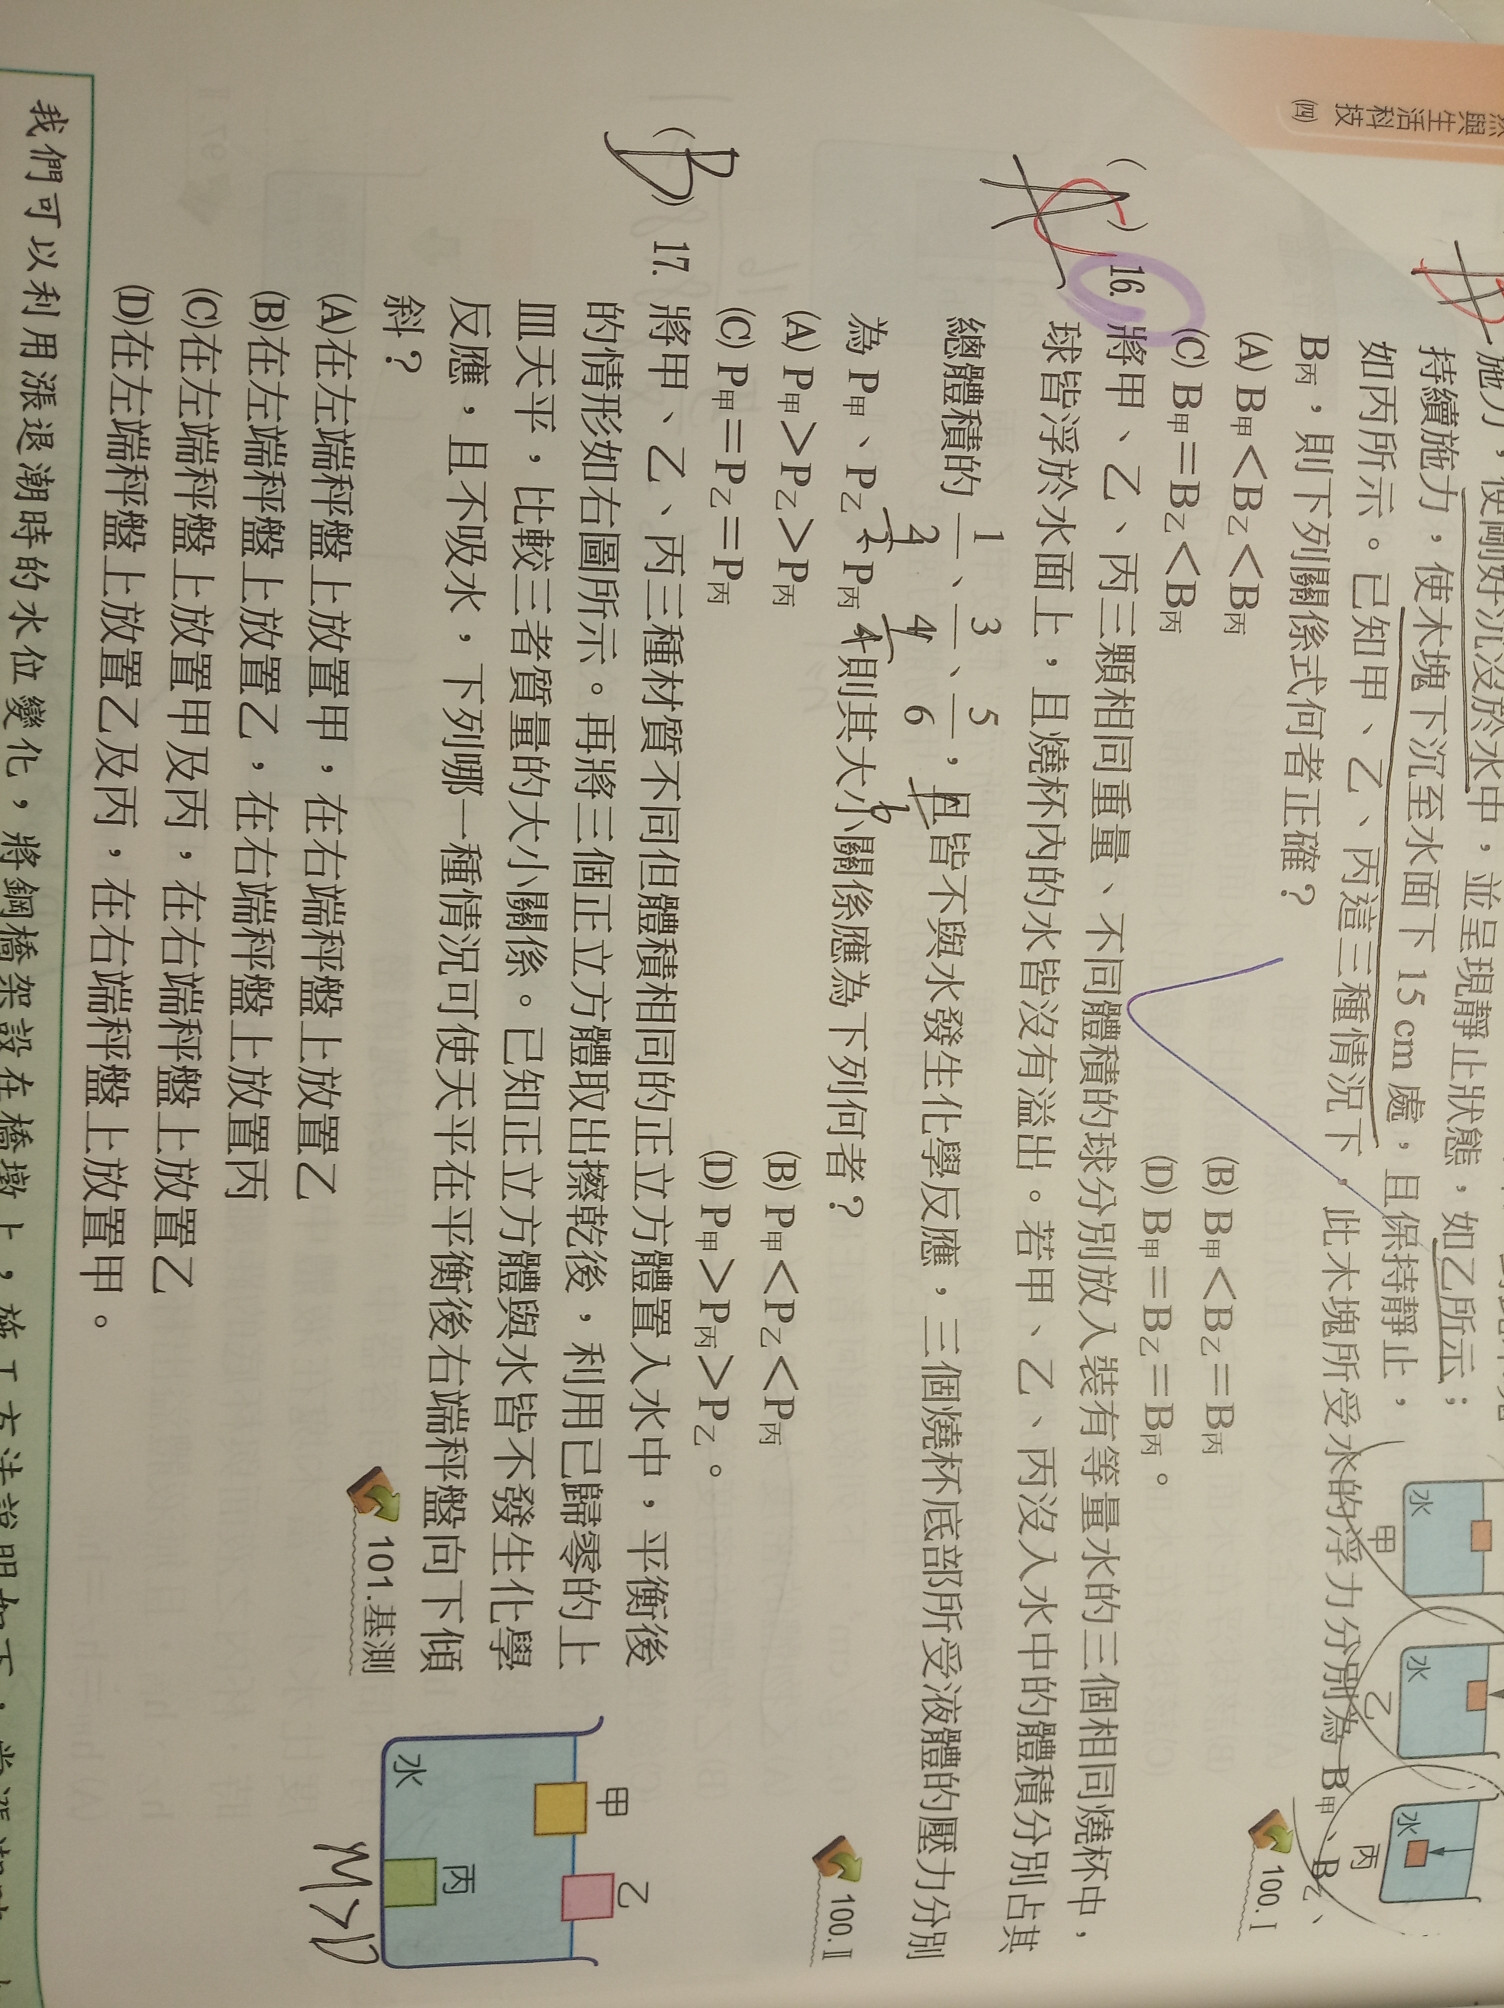 然與生活科技
(四)
施力,使剛好沉沒於水中,並呈現靜止狀態,如乙所示;
持續施力,使木塊下沉至水面下 15 cm 處,且保持靜止,
如丙所示。已知甲、乙、丙這三種情況下,此木塊所受水的浮力分別為 B甲、B乙、
B丙,則下列關係式何者正確?
100.I
(A) B甲<B乙<B丙 (B) B甲<B乙=B丙
(C) B甲=B乙<B丙 (D) B甲=B乙=B丙。
水 甲
水 乙
水 丙
( ) 16. 將甲、乙、丙三顆相同重量、不同體積的球分別放入裝有等量水的三個相同燒杯中,
球皆浮於水面上,且燒杯內的水皆沒有溢出。若甲、乙、丙沒入水中的體積分別占其
總體積的 1/2、3/4、5/6,且皆不與水發生化學反應,三個燒杯底部所受液體的壓力分別
為 P甲、P乙、P丙,則其大小關係應為下列何者?
100.II
(A) P甲>P乙>P丙 (B) P甲<P乙<P丙
(C) P甲=P乙=P丙 (D) P甲>P丙>P乙。
(B) 17. 將甲、乙、丙三種材質不同但體積相同的正立方體置入水中,平衡後
的情形如右圖所示。再將三個正立方體取出擦乾後,利用已歸零的上
皿天平,比較三者質量的大小關係。已知正立方體與水皆不發生化學
反應,且不吸水,下列哪一種情況可使天平在平衡後右端秤盤向下傾
斜?
101.基測
(A)在左端秤盤上放置甲,在右端秤盤上放置乙
(B)在左端秤盤上放置乙,在右端秤盤上放置丙
(C)在左端秤盤上放置甲及丙,在右端秤盤上放置乙
(D)在左端秤盤上放置乙及丙,在右端秤盤上放置甲。
甲
乙
丙
水
M>D
我們可以利用漲退潮時的水位變化,將鋼橋架設在橋墩上,施工方法說明如下: